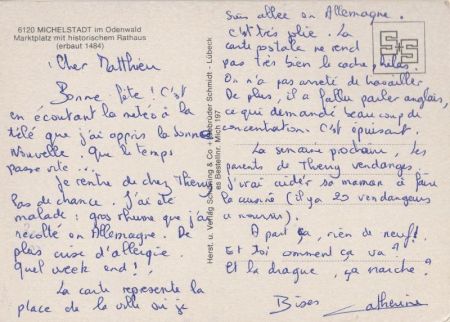 6120 MICHELSTADT im Odenwald
Marktplatz mit historischem Rathaus
(erbaut 1484)
Cher Matthieu
Bonne fête ! C'est
en écoutant la météo à la
télé que j'ai appris la bonne
nouvelle. Que le temps
passe vite...
Je rentre de chez Thierry
Pas de chance. J'ai été
malade : gros rhume que j'ai
récolté en Allemagne. De
plus crise d'allergie.
Quel week end !
La carte représente la
place de la ville où je
Herst. u. Verlag Schöning & Co + Gebrüder Schmidt - Lübeck
es Bestellnr. Mich 197
suis allée en Allemagne.
C'est très jolie. La
carte postale ne rend
pas très bien le cachet, hélas.
On n'a pas arrêté de travailler
De plus, il a fallu parler anglais,
ce qui demande beaucoup de
concentration. C'est épuisant.
La semaine prochaine, les
parents de Thierry vendanges.
J'irai aider sa maman à faire
la cuisine (il y a 25 vendangeurs
à nourrir).
A part ça, rien de neuf.
Et toi comment ça va ?
Et la drague, ça marche ?
Bises Catherine